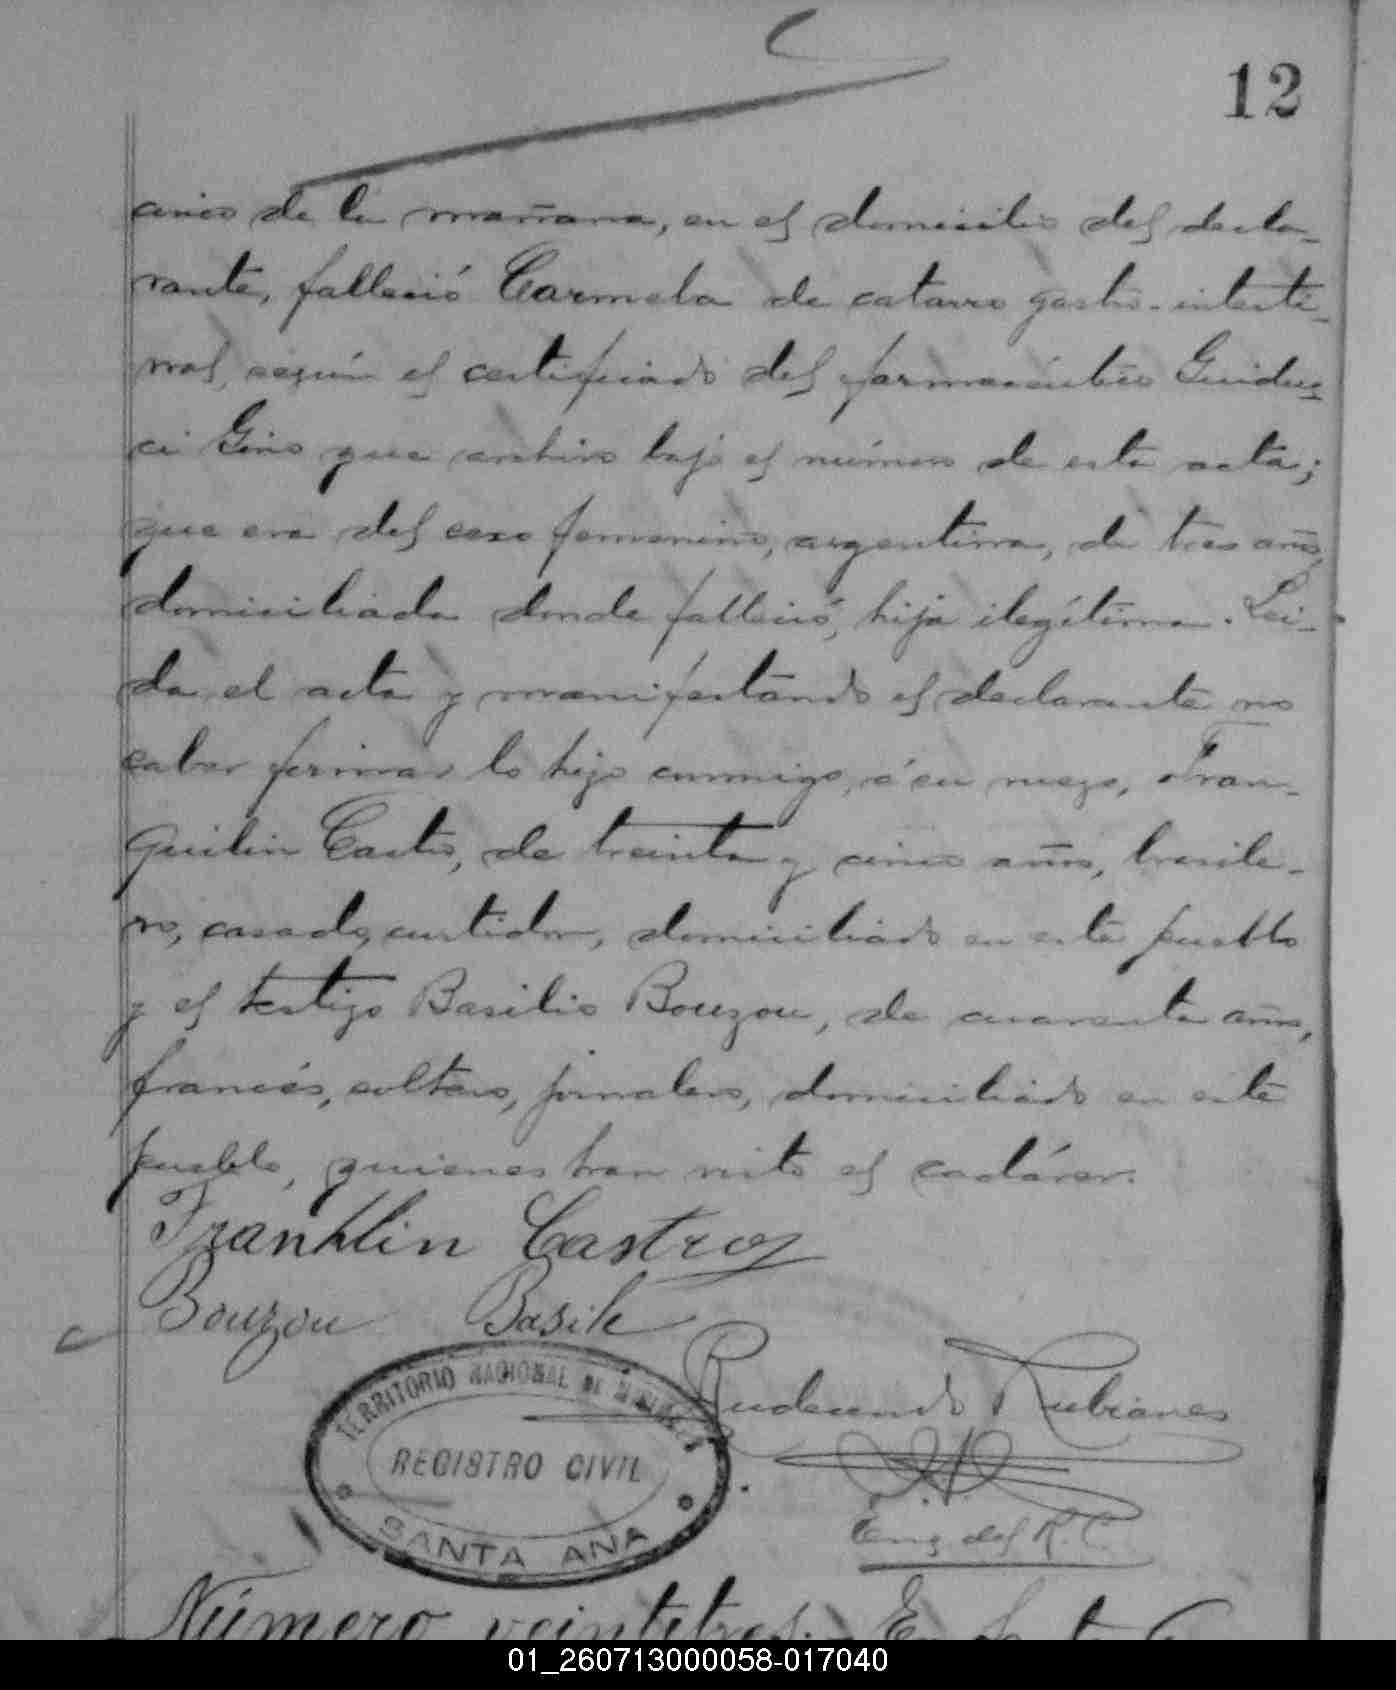 12
cinco de la mañana, en el domicilio del decla-
rante, falleció Carmela de catarro gastro-intesti-
nal, según el certificado del farmacéutico Guiduc-
ci Gino que archivo bajo el número de esta acta;
que era del sexo femenino, argentina, de tres años,
domiciliada donde falleció, hija ilegítima. Lei-
da el acta y manifestando el declarante no
saber firmar lo hizo conmigo, á su ruego, Fran-
quilin Castro, de treinta y cinco años, brasile-
ro, casado, curtidor, domiciliado en este pueblo
y el testigo Basilio Bouzou, de cuarenta años,
francés, soltero, jornalero, domiciliado en este
pueblo, quienes han visto el cadáver.
Franklin Castro
Bouzou Basile
Rudecindo Rubianes
Enc. del R. C.
TERRITORIO NACIONAL DE MISIONES
REGISTRO CIVIL
SANTA ANA
Número veintitres. En Santa
01_260713000058-017040